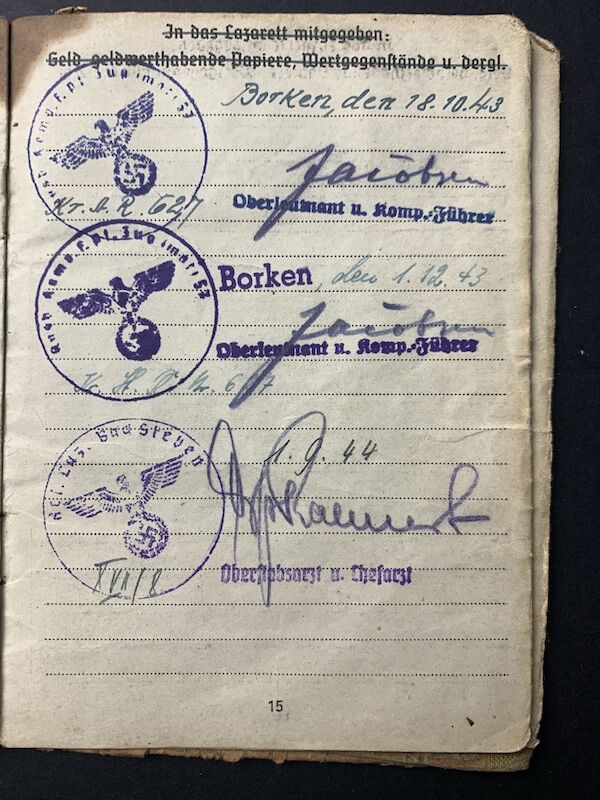 In das Lazarett mitgegeben:
Geld geldwerthabende Papiere, Wertgegenstände u. dergl.
Borken, den 18.10.43
Jacobsen
Oberleutnant u. Komp.-Führer
627
Borken, den 1.12.43
Jacobsen
Oberleutnant u. Komp.-Führer
Res. Laz. Bad Steben
1.9.44
Oberstabsarzt u. Chefarzt
XVII/8
15